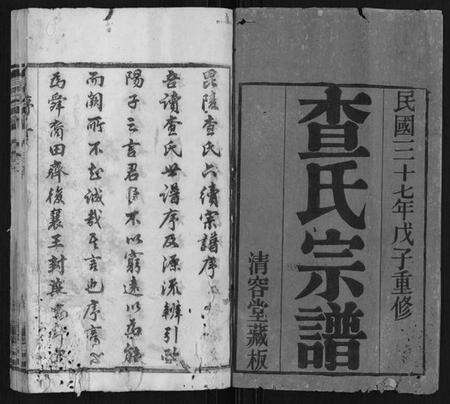 民國三十七年戊子重修
查氏宗譜
清容堂藏板
毘陵查氏六續宗譜序
吾讀查氏世譜序及源流辨引歐
陽子云言君子不以窮遠以為能
而闕所不知誠哉是言也序
為舜裔田齊後襄王封